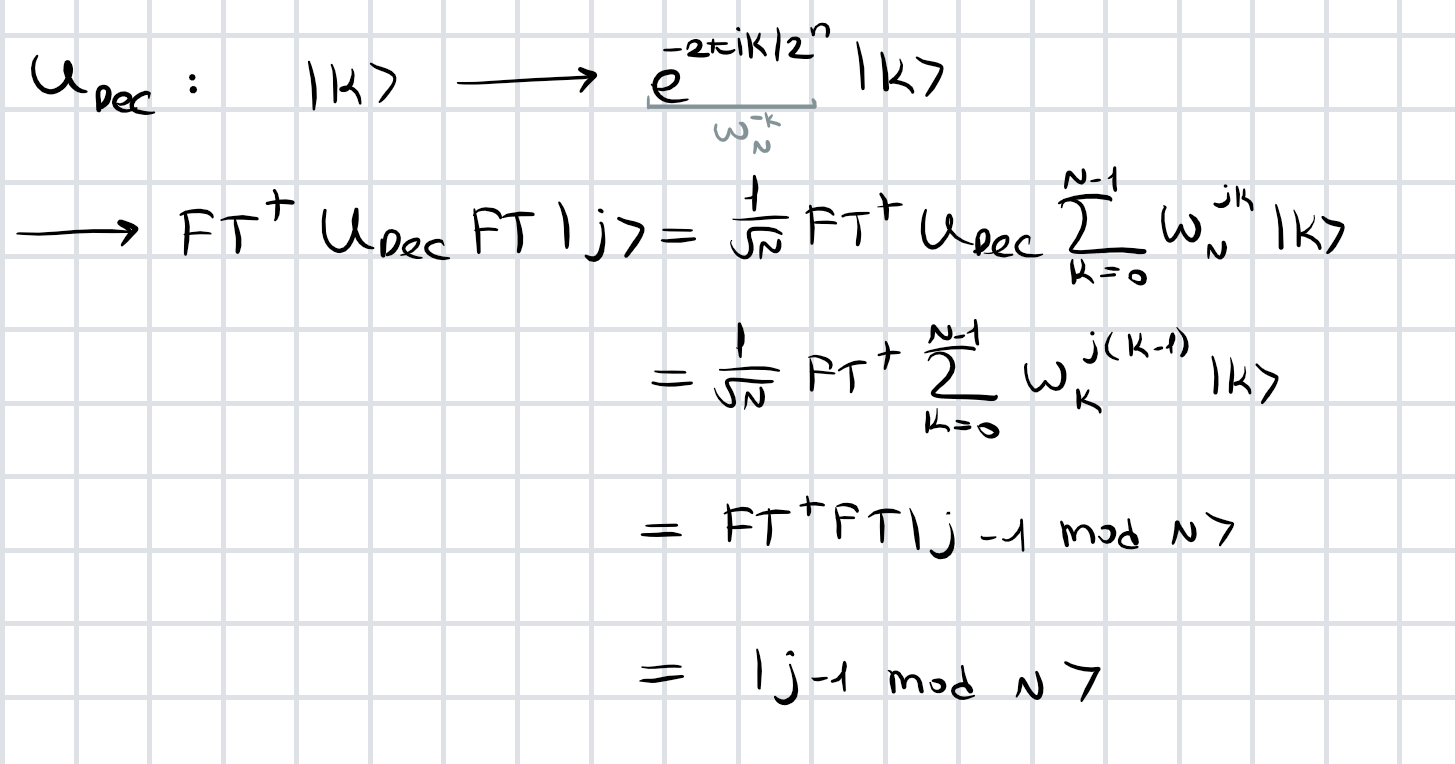 U_Dec : |k⟩ ⟶ e^{-2πik/2^n} |k⟩
ω_N^{-k}
⟶ FT^† U_Dec FT |j⟩ = 1/√N FT^† U_Dec ∑_{k=0}^{N-1} ω_N^{jk} |k⟩
= 1/√N FT^† ∑_{k=0}^{N-1} ω_k^{j(k-1)} |k⟩
= FT^† FT |j-1 mod N⟩
= |j-1 mod N⟩